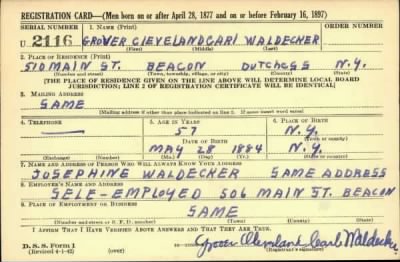 REGISTRATION CARD—(Men born on or after April 28, 1877 and on or before February 16, 1897)
SERIAL NUMBER 1. NAME (Print)
U 2116 GROVER CLEVELAND CARL WALDECHER
(First) (Middle) (Last)
2. PLACE OF RESIDENCE (Print)
510 MAIN ST. BEACON DUTCHESS N.Y.
(Number and street) (Town, township, village, or city) (County) (State)
[THE PLACE OF RESIDENCE GIVEN ON THE LINE ABOVE WILL DETERMINE LOCAL BOARD
JURISDICTION; LINE 2 OF REGISTRATION CERTIFICATE WILL BE IDENTICAL]
3. MAILING ADDRESS
SAME
[Mailing address if other than place indicated on line 2. If same insert word same]
4. TELEPHONE 5. AGE IN YEARS 6. PLACE OF BIRTH
— 57 N.Y.
DATE OF BIRTH (Town or county)
MAY 28 1884 N.Y.
(Exchange) (Number) (Mo.) (Day) (Yr.) (State or country)
7. NAME AND ADDRESS OF PERSON WHO WILL ALWAYS KNOW YOUR ADDRESS
JOSEPHINE WALDECHER SAME ADDRESS
8. EMPLOYER'S NAME AND ADDRESS
SELF-EMPLOYED 506 MAIN ST. BEACON
9. PLACE OF EMPLOYMENT OR BUSINESS
SAME
(Number and street or R. F. D. number) (Town) (County) (State)
I AFFIRM THAT I HAVE VERIFIED ABOVE ANSWERS AND THAT THEY ARE TRUE.
D. S. S. Form 1
(Revised 4-1-42)
Grover Cleveland Carl Waldecher
(Registrant's signature)